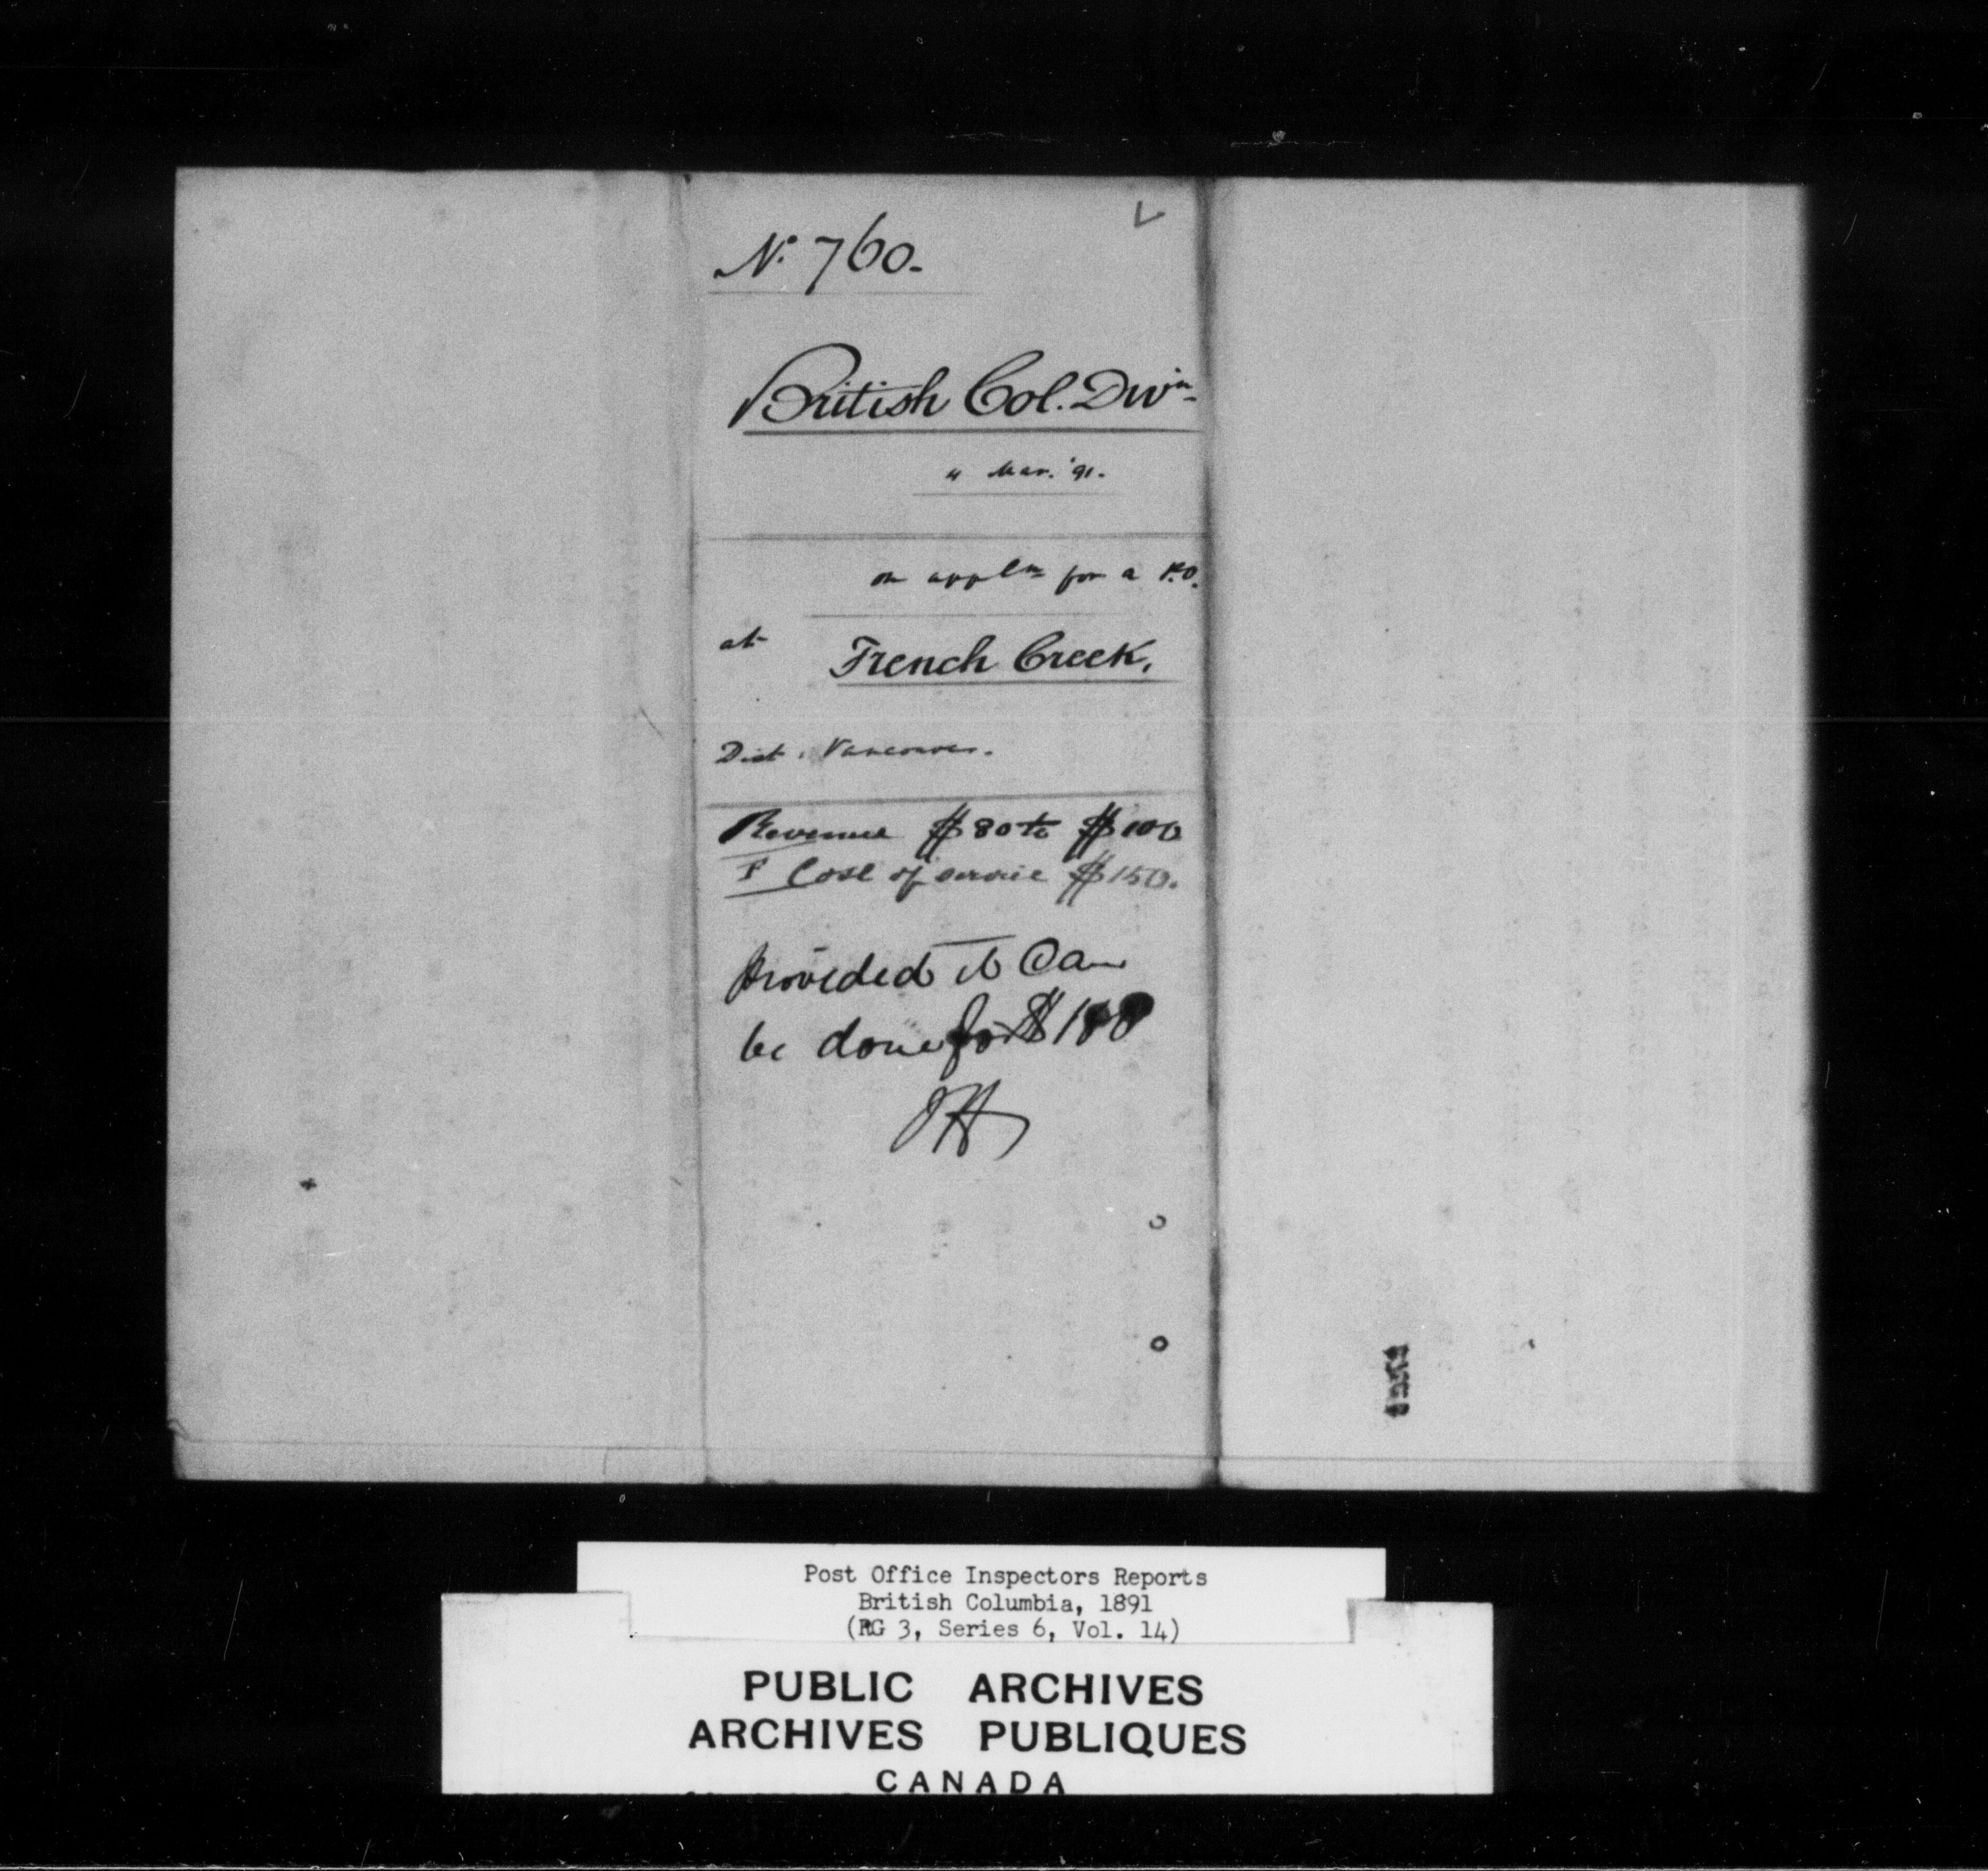 No. 760.
British Col. Divn.
" Mar. '91.
on appln for a P.O.
at French Creek,
Dist. Vancouver.
Revenue $80 to $100
Cost of service $150.
Provided it can
be done for $100
JH
Post Office Inspectors Reports
British Columbia, 1891
(RG 3, Series 6, Vol. 14)
PUBLIC ARCHIVES
ARCHIVES PUBLIQUES
CANADA